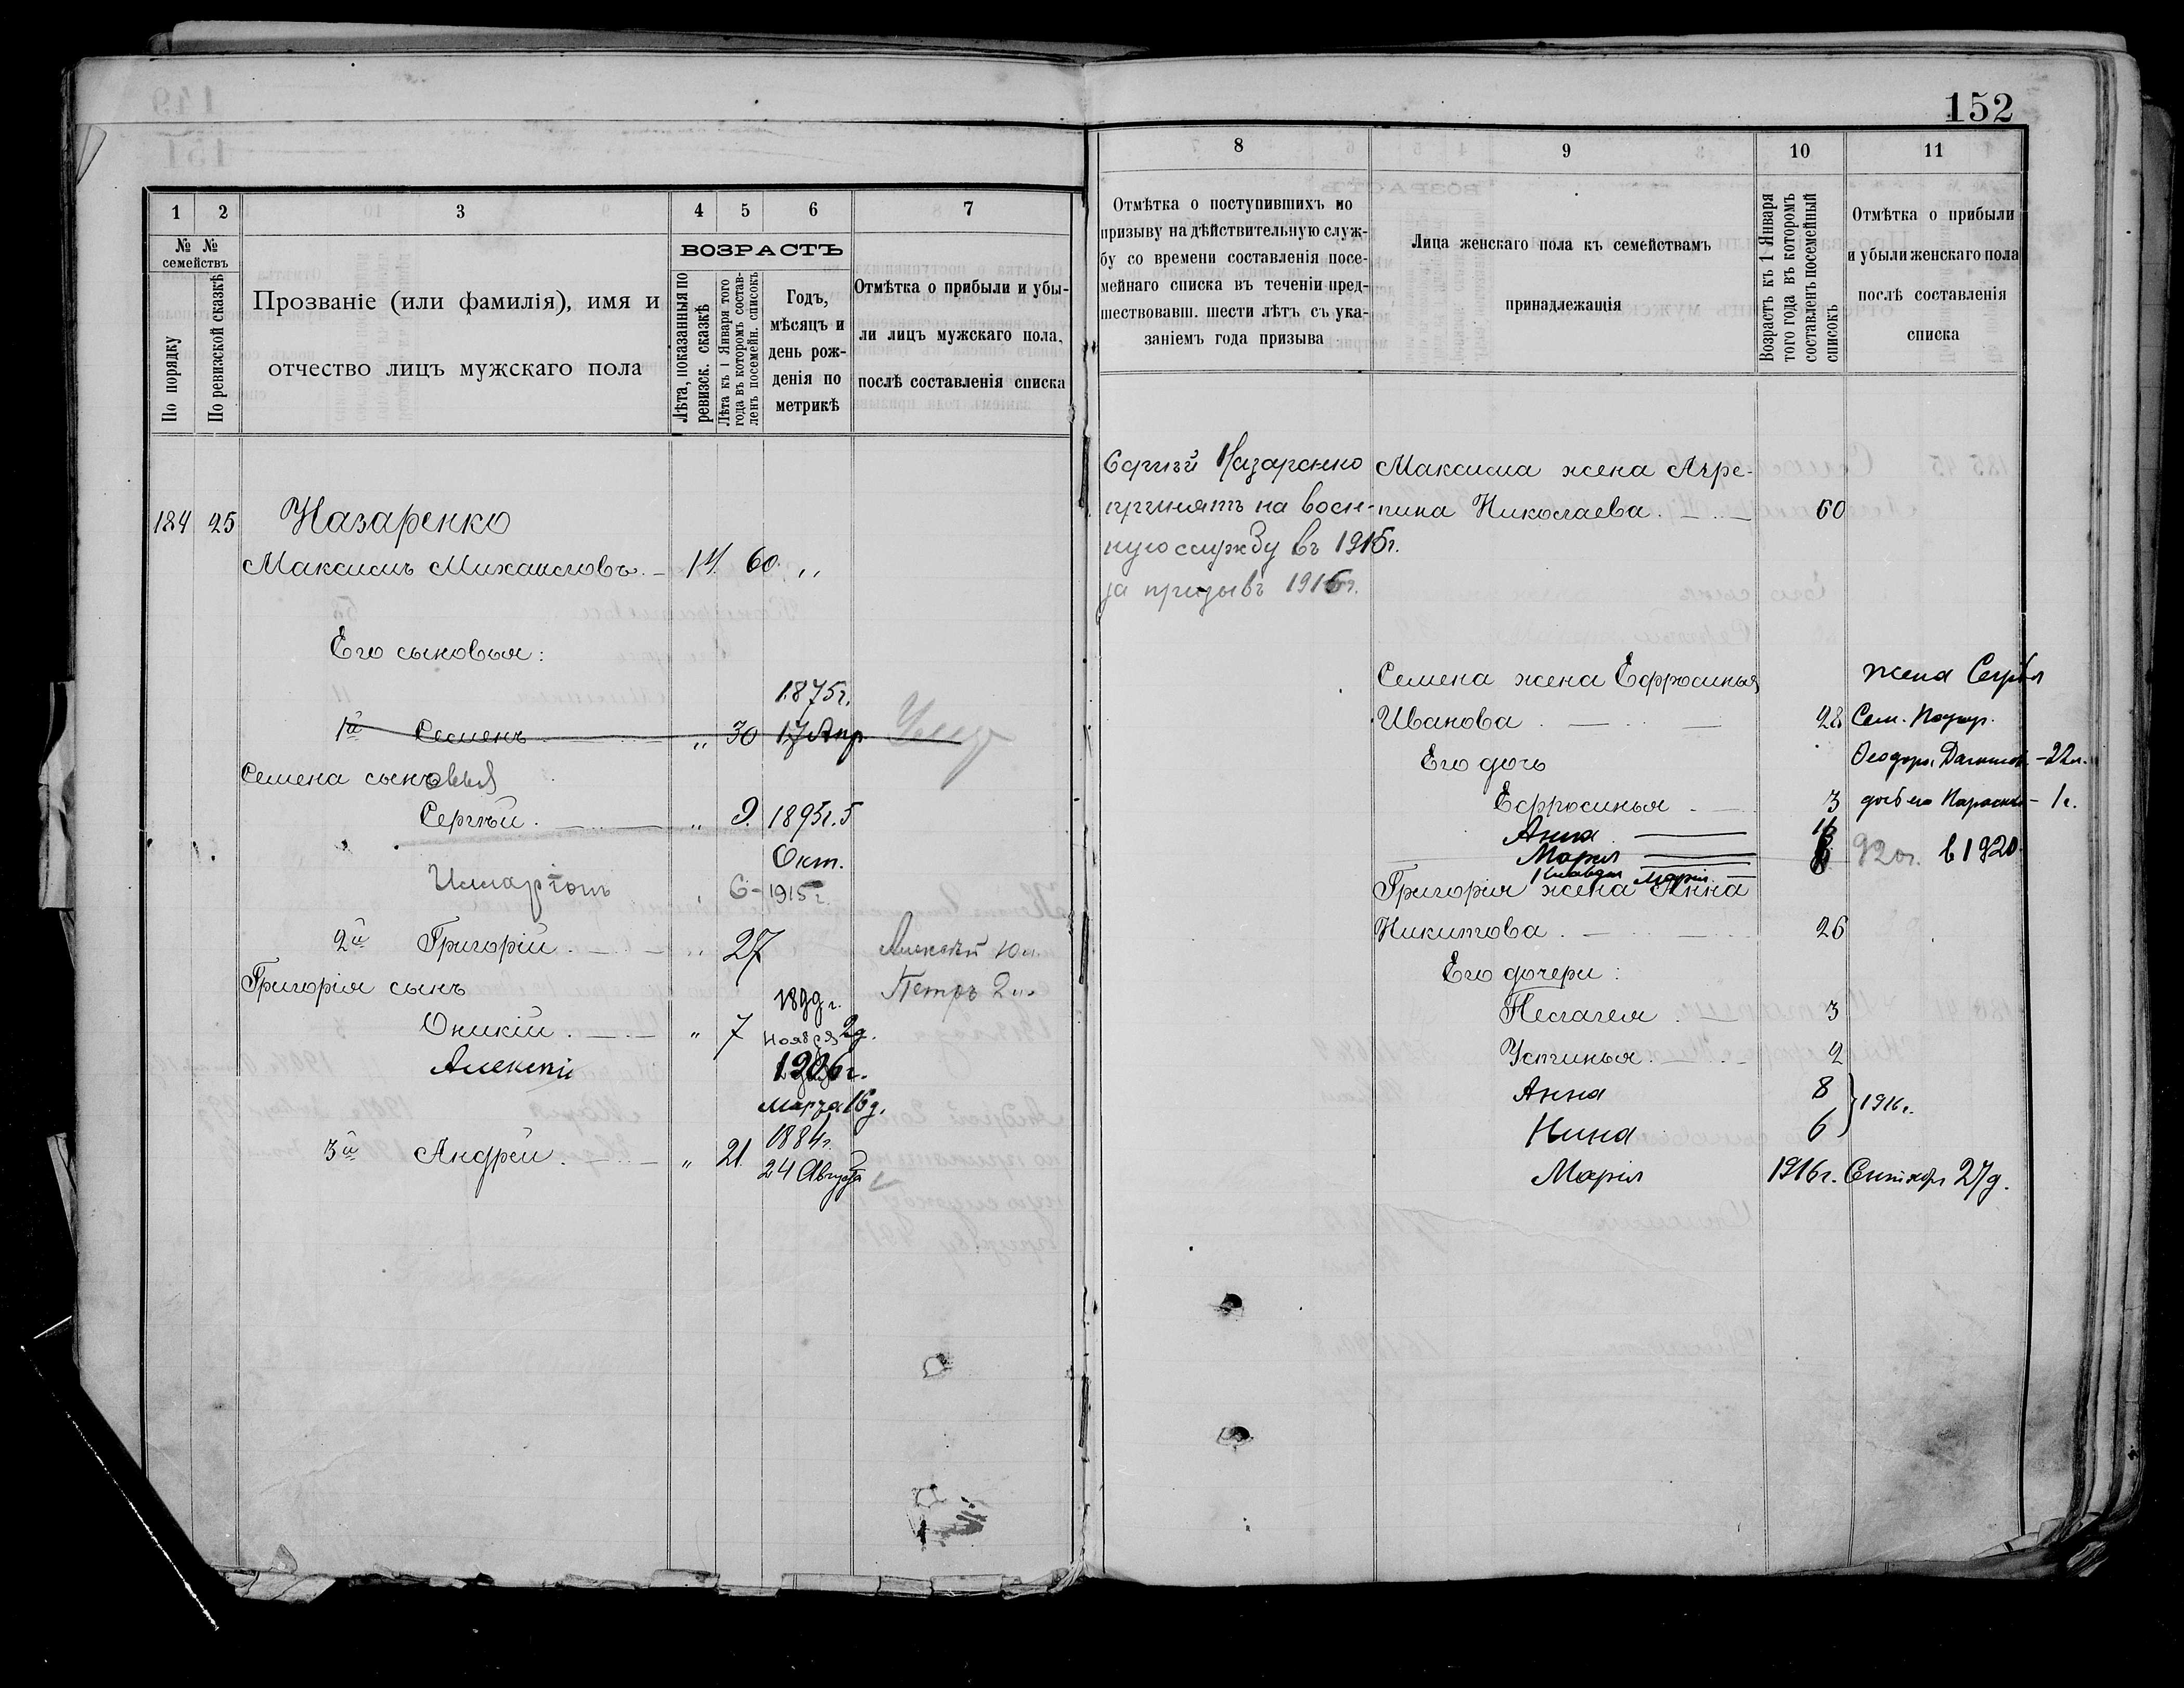 152
1 2 3 4 5 6 7
№ № семействъ
По порядку
По ревизской сказкѣ
Прозваніе (или фамилія), имя и
отчество лицъ мужскаго пола
ВОЗРАСТЪ
Лѣта, показанныя по
ревизск. сказкѣ
Лѣта къ 1 Января того
года въ которомъ состав-
ленъ посемейн. списокъ
Годъ,
мѣсяцъ и
день рож-
денія по
метрикѣ
Отмѣтка о прибыли и убы-
ли лицъ мужскаго пола,
послѣ составленія списка
184 25 Назаренко
Максимъ Михаиловъ 14 60 „
Его сыновья:
1875г.
1й Семенъ „ 30 17 Апр
Семена сыновья
Сергѣй „ 9 1895г. 5
Окт.
6 - 1915г.
2й Григорій „ 27 Алексѣй 10 л.
Григорія сынъ Петръ 2 л.
1899 г.
Оникій „ 7 ноября 2д.
Алексѣй 1906г.
Марта 16 д.
1884г.
3й Андрей „ 21 24 Августа
8 9 10 11
Отмѣтка о поступившихъ по
призыву на дѣйствительную служ-
бу со времени составленія посе-
мейнаго списка въ теченіи пред-
шествовавш. шести лѣтъ съ ука-
заніемъ года призыва
Лица женскаго пола къ семействамъ
принадлежащія
Возрастъ къ 1 Января
того года въ которомъ
составленъ посемейный
списокъ
Отмѣтка о прибыли
и убыли женскаго пола
послѣ составленія
списка
Сергѣй Назаренко
принятъ на воен-
ную службу въ 1915г.
за призывъ 1916г.
Максима жена Агре-
пина Николаева 60
Семена жена Ефросинья
Иванова 28
Его дочь
Ефросинья 3
Анна
Марія
Клавдия Марія
жена Сергѣя
Сем. Назар.
Феодора - 22 л.
дочь его - 1 г.
920г. в 1920
Григорія жена Анна
Никитова 26
Его дочери:
Пелагея 3
Устинья 2
Анна 8
Нина 6 } 1916г.
Марія 1916г. Сентября 27д.